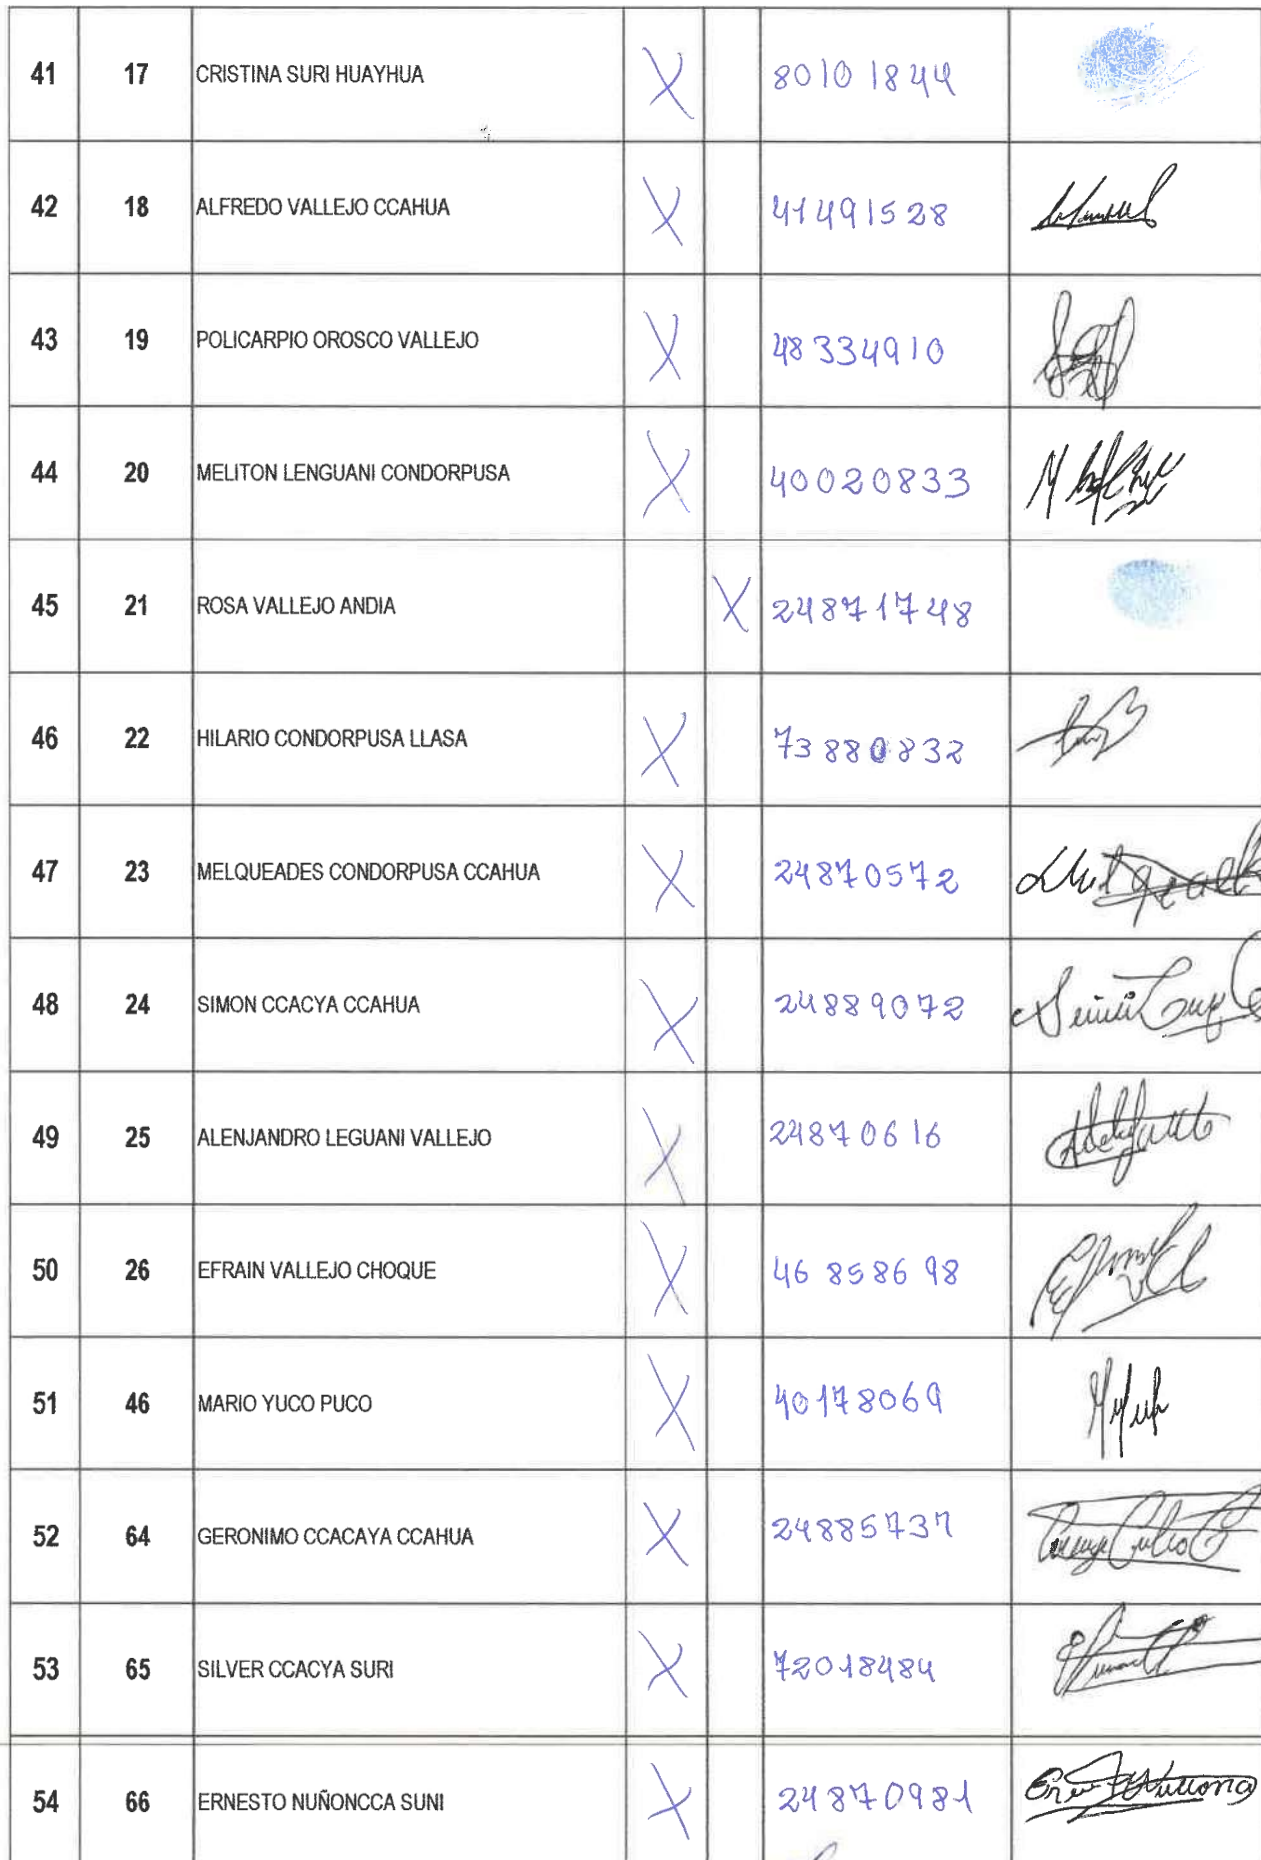 41 17 CRISTINA SURI HUAYHUA X 80101844
42 18 ALFREDO VALLEJO CCAHUA X 41491528
43 19 POLICARPIO OROSCO VALLEJO X 48334910
44 20 MELITON LENGUANI CONDORPUSA X 40020833
45 21 ROSA VALLEJO ANDIA X 24871748
46 22 HILARIO CONDORPUSA LLASA X 73880832
47 23 MELQUEADES CONDORPUSA CCAHUA X 24870572
48 24 SIMON CCACYA CCAHUA X 24889072
49 25 ALENJANDRO LEGUANI VALLEJO X 24870616
50 26 EFRAIN VALLEJO CHOQUE X 46858698
51 46 MARIO YUCO PUCO X 40178069
52 64 GERONIMO CCACAYA CCAHUA X 24885737
53 65 SILVER CCACYA SURI X 72018484
54 66 ERNESTO NUÑONCCA SUNI X 24870981